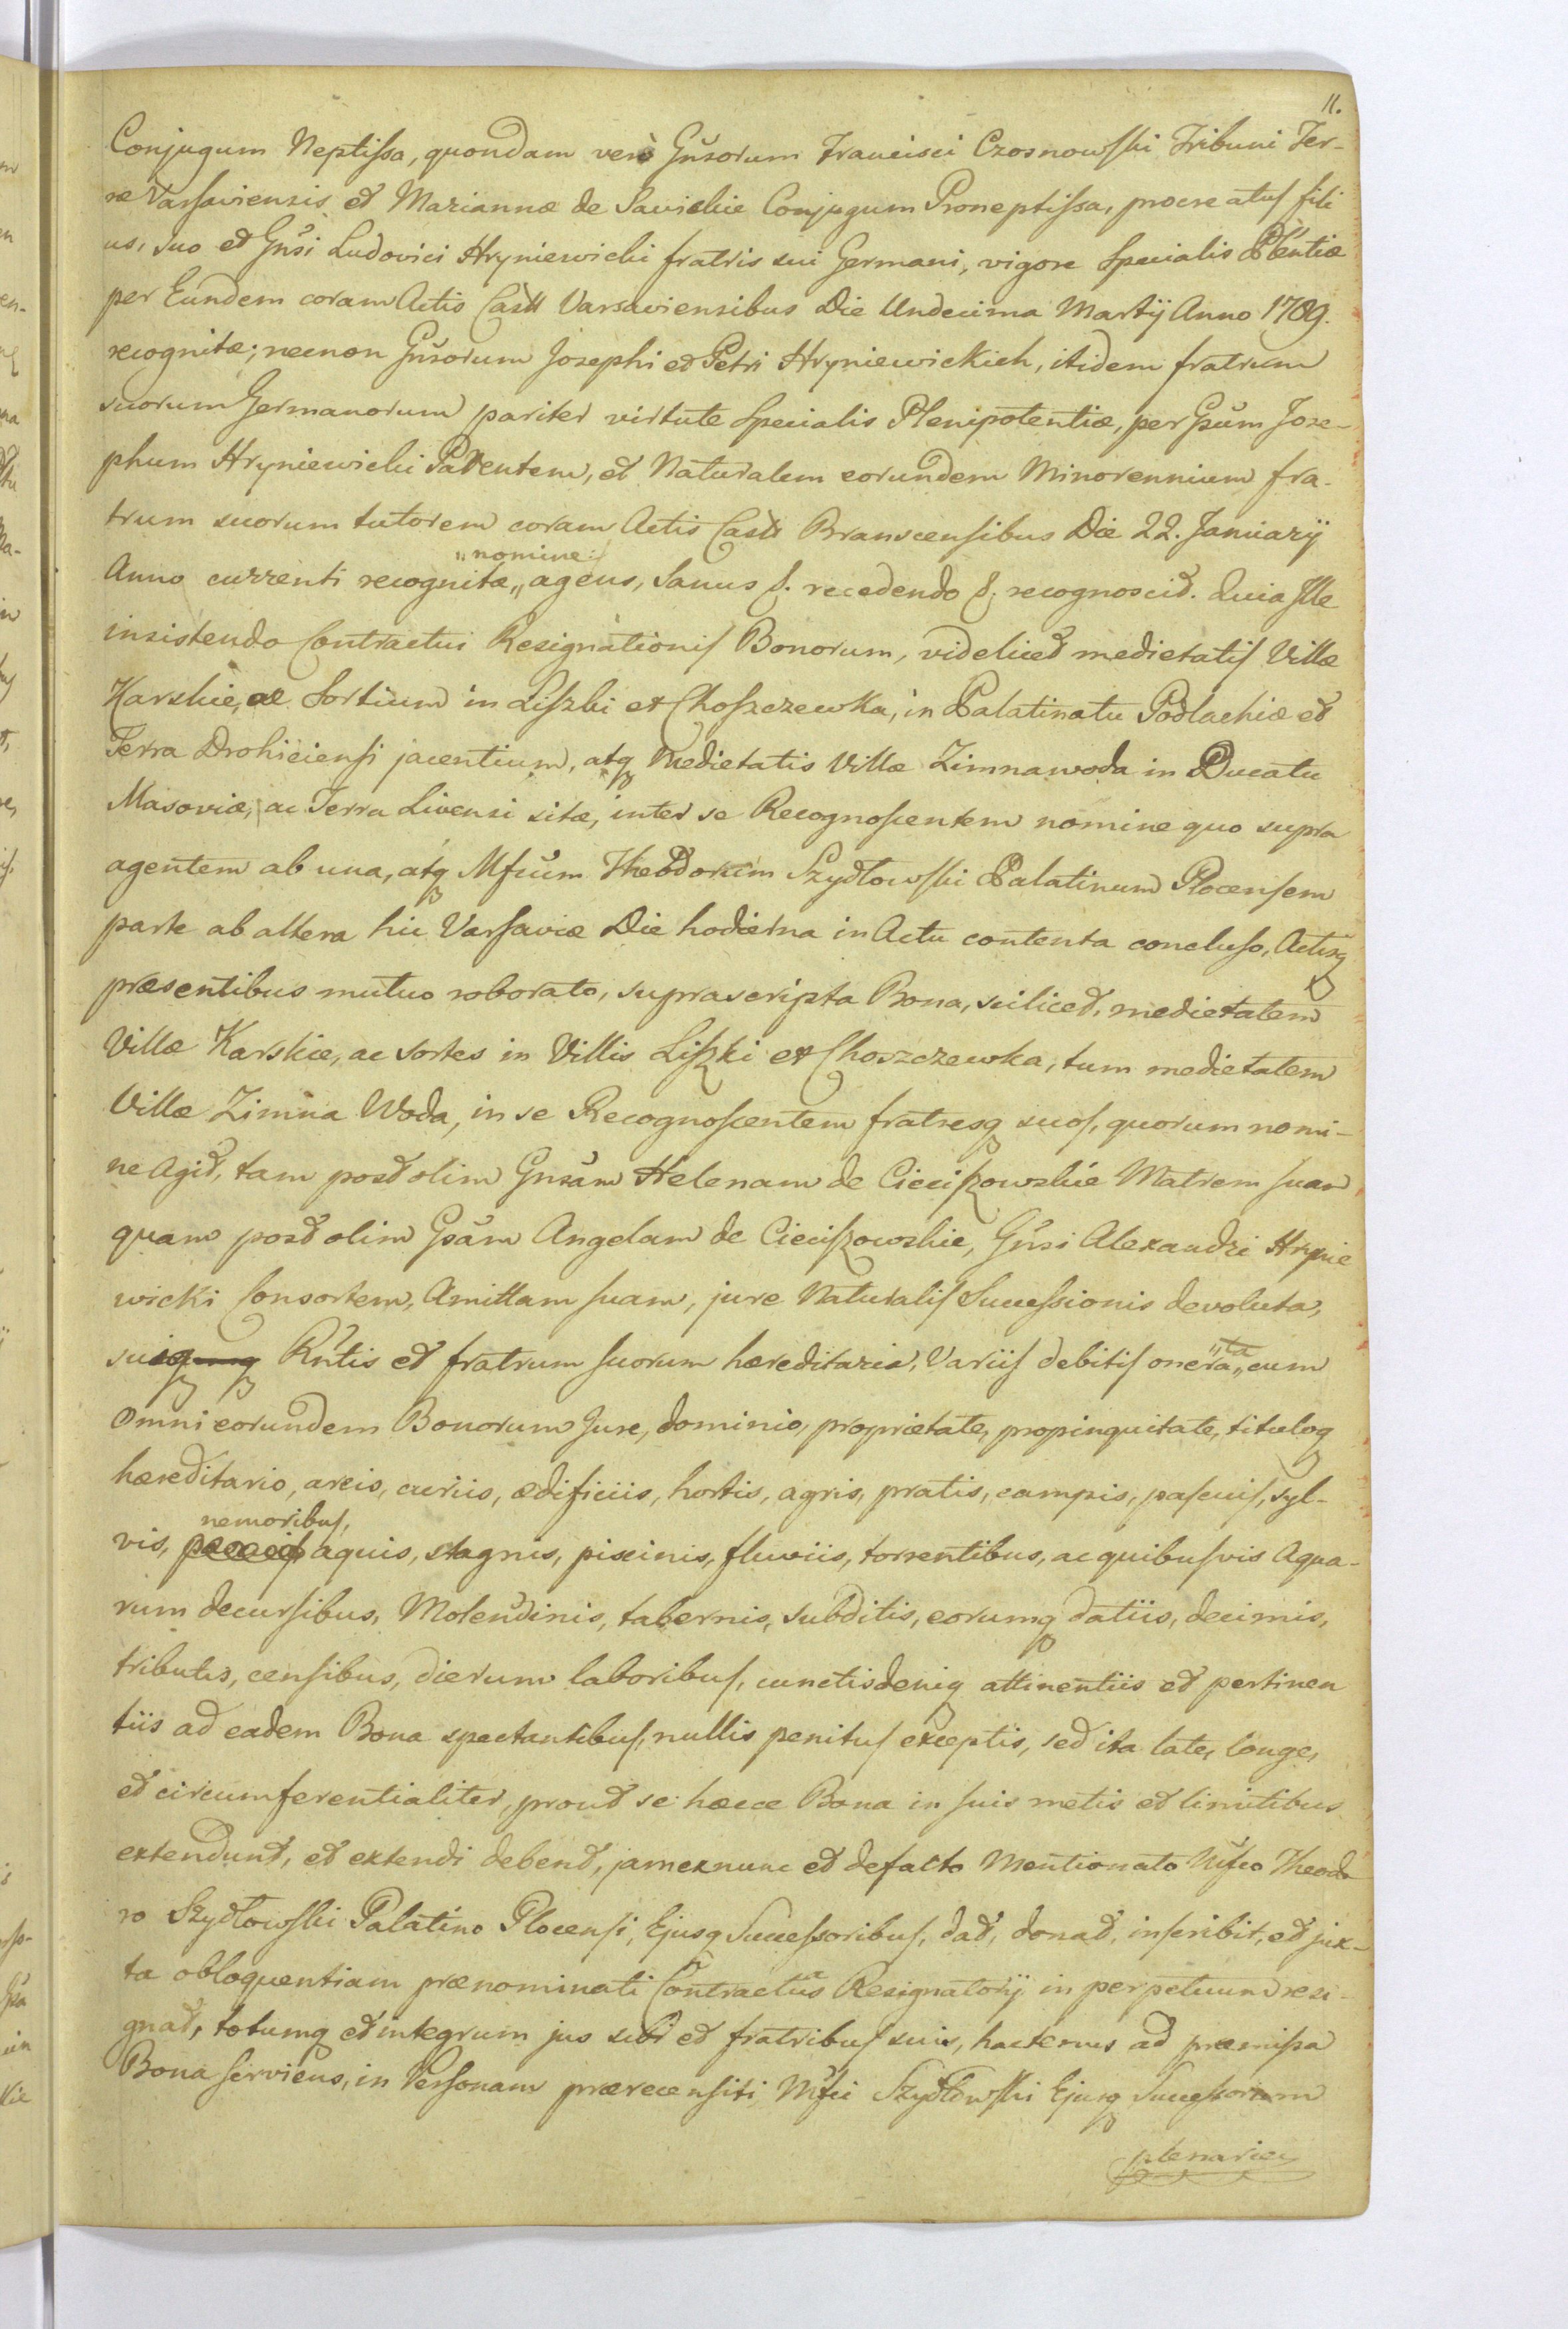 11.
Conjugum Neptissa, quondam verò Gnsorum Francisci Czosnowski Tribuni Ter-
ræ Varsaviensis et Mariannæ de Savickie Conjugum Proneptissa, procreatus fili
us, suo et Gnsi Ludovici Hryniewicki fratris sui Germani, vigore Specialis Plentiæ
per Eundem coram Actis Castr Varsaviensibus Die Undecima Martij Anno 1789.
recognitæ; necnon Gnsorum Josephi et Petri Hryniewickich, itidem fratrum
suorum Germanorum pariter virtute Specialis Plenipotentiæ, per Gsum Jose-
phum Hryniewicki Parentem, et Naturalem eorundem Minorennium fra-
trum suorum tutorem coram Actis Castr Branscensibus Die 22. Januarij
Anno currenti recognitæ „nomine:/ agens, Sanus &. recedendo &. recognoscit. Quia Ille
insistendo Contractui Resignationis Bonorum, videlicet medietatis Villæ
Karskie, ac Sortium in Liszki et Choszczewka, in Palatinatu Podlachiæ et
Terra Drohiciensi jacentium, atq Medietatis Villæ Zimnawoda in Ducatu
Masoviæ, ac Terra Livensi sitæ, inter se Recognoscentem nomine quo supra
agentem ab una, atq Mfcum Theodorum Szydłowski Palatinum Plocensem
parte ab altera hic Varsaviæ Die hodierna in Actu contenta concluso, Actisq
præsentibus mutuo roborato, suprascripta Bona, scilicet, medietatem
Villæ Karskie, ac sortes in Villis Liszki et Choszczewka, tum medietatem
Villæ Zimna Woda, in se Recognoscentem fratresq suos, quorum nomi-
ne Agit, tam post olim Gnsam Helenam de Cieciszowskie Matrem suam
quam post olim Gsam Angelam de Cieciszowskie, Gnsi Alexandri Hrynie
wicki Consortem, Amittam suam, jure Naturalis Successionis devoluta,
Rntis et fratrum suorum hæreditaria, Variis debitis onera„ta„ cum
Omni eorundem Bonorum Jure, dominio, proprietate, propinquitate, tituloq
hæreditario, areis, curiis, ædificiis, hortis, agris, pratis, campis, pascuis, syl-
vis, nemoribus, aquis, stagnis, piscinis, fluviis, torrentibus, ac quibusvis Aqua-
rum decursibus, Molendinis, tabernis, subditis, eorumq datiis, decimis,
tributis, censibus, dierum laboribus, cunctis deniq attinentiis et pertinen
tiis ad eadem Bona spectantibus, nullis penitus exceptis, sed ita late, longe,
et circumferentialiter, prout se hæcce Bona in suis metis et limitibus
extendunt, et extendi debent, jam exnunc et defacto Mentionato Mfco Theodo
ro Szydłowski Palatino Plocensi, Ejusq Successoribus, dat, donat, inscribit, et jux-
ta obloquentiam prænominati Contractus Resignatorij in perpetuum resi-
gnat, totumq et integrum jus sibi et fratribus suis, hactenus ad præmissa
Bona serviens, in Personam prærecensiti Mfci Szydłowski Ejusq Successorum
plenarie